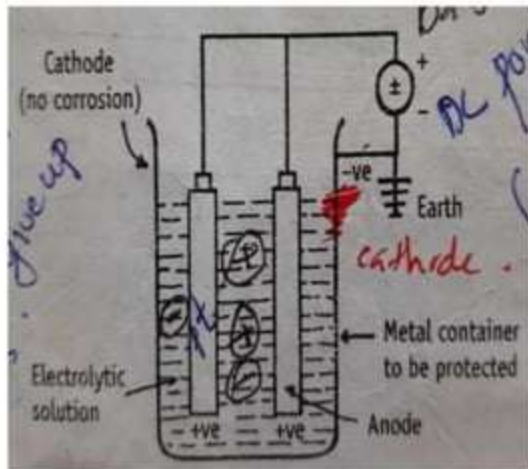 Cathode
(no corrosion)
+
±
-
DC
-ve
Earth
give up
cathode.
Metal container
to be protected
pt
Electrolytic
solution
Anode
+ve
+ve